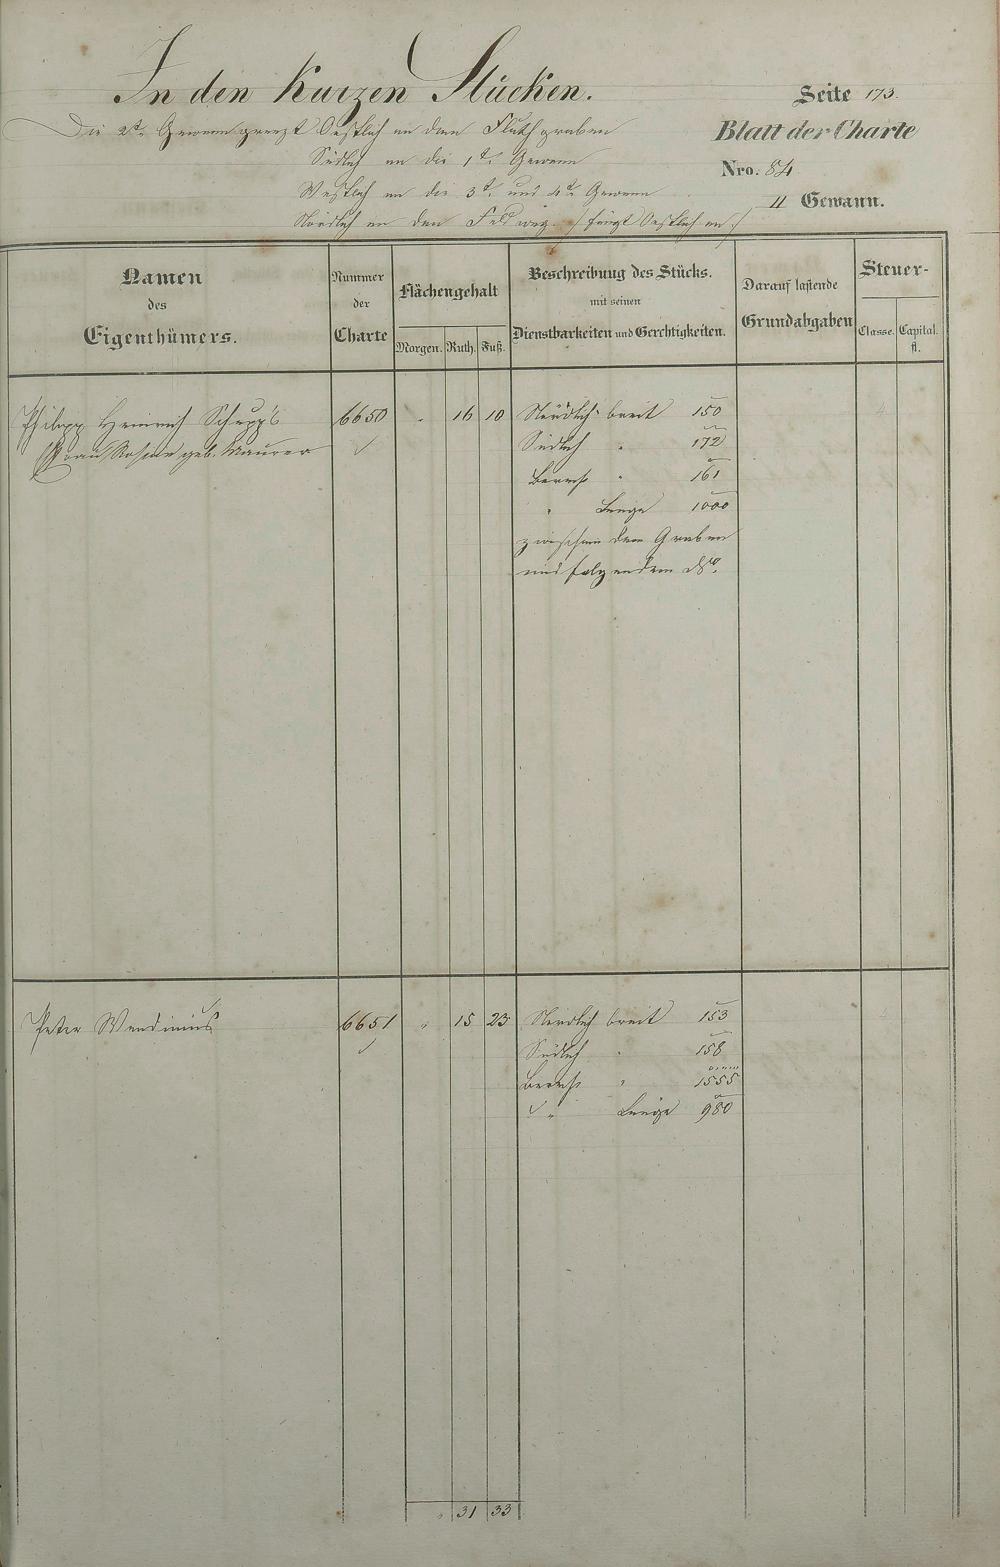 In den Kurzen Stücken.
Seite 173.
Die 2te Gewann grenzt Oestlich an den Fluthgraben
Blatt der Charte
Südlich an die 1te Gewann
Nro. 84
Westlich an die 3te und 4te Gewann
II Gewann.
Nördlich an den Feldweg. /: fängt Oestlich an :/
Namen
des
Eigenthümers.
Nummer
der
Charte
Flächengehalt
Morgen. Ruth. Fuß.
Beschreibung des Stücks.
mit seinen
Dienstbarkeiten und Gerechtigkeiten.
Darauf lastende
Grundabgaben
Steuer-
Classe. Capital.
fl.
Philipp Heinrich Schupp's 6650 " 16 10 Nördlich breit 150
Frau Rosine geb. Maurer Südlich " 172
Berech " 161
" Länge 1000
zwischen dem Graben
und folgendem
Peter Wendinius 6651 " 15 23 Nördlich breit 153
Südlich " 158
Berech " 1555
" Länge 980
" 31 33